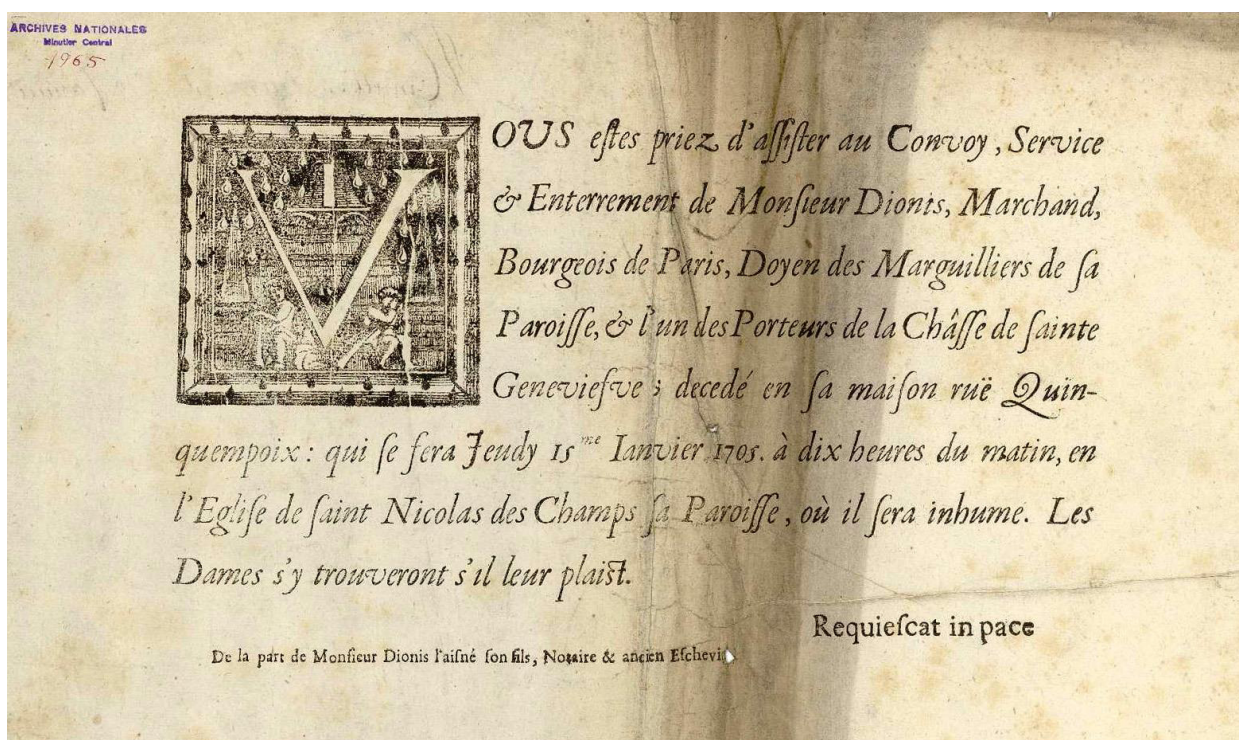 ARCHIVES NATIONALES
Minutier Central
1965
VOUS eſtes priez d'aſſiſter au Convoy, Service
& Enterrement de Monſieur Dionis, Marchand,
Bourgeois de Paris, Doyen des Marguilliers de ſa
Paroiſſe, & l'un des Porteurs de la Châſſe de ſainte
Genevieſve; decedé en ſa maiſon ruë Quin-
quempoix: qui ſe fera Jeudy 15me Ianvier 1705. à dix heures du matin, en
l'Egliſe de ſaint Nicolas des Champs ſa Paroiſſe, où il ſera inhume. Les
Dames s'y trouveront s'il leur plaiſt.
Requieſcat in pace
De la part de Monſieur Dionis l'aiſné ſon fils, Notaire & ancien Eſchevin